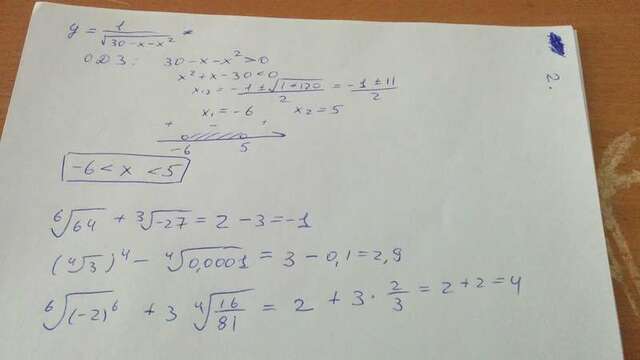 y = 1/√(30-x-x²)
ОДЗ: 30-x-x²>0
x²+x-30<0
x₁,₂ = (-1±√(1+120))/2 = (-1±11)/2
x₁=-6 x₂=5
+ - +
-6 5
-6<x<5
⁶√64 + ³√-27 = 2-3=-1
(⁴√3)⁴ - ⁴√0,0001 = 3-0,1=2,9
⁶√(-2)⁶ + 3 ⁴√(16/81) = 2 + 3·2/3 = 2+2=4
2.